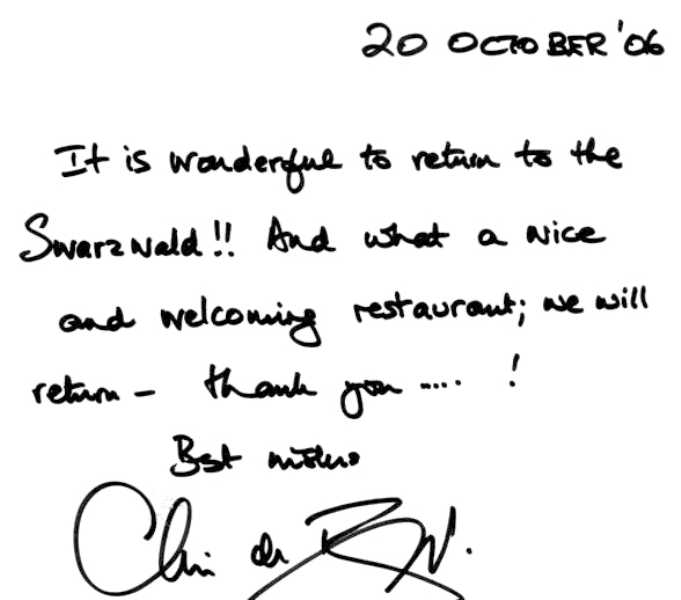 20 OCTOBER '06
It is wonderful to return to the
Swarzwald!! And what a nice
and welcoming restaurant; we will
return - thank you ..... !
Best wishes
Chris de